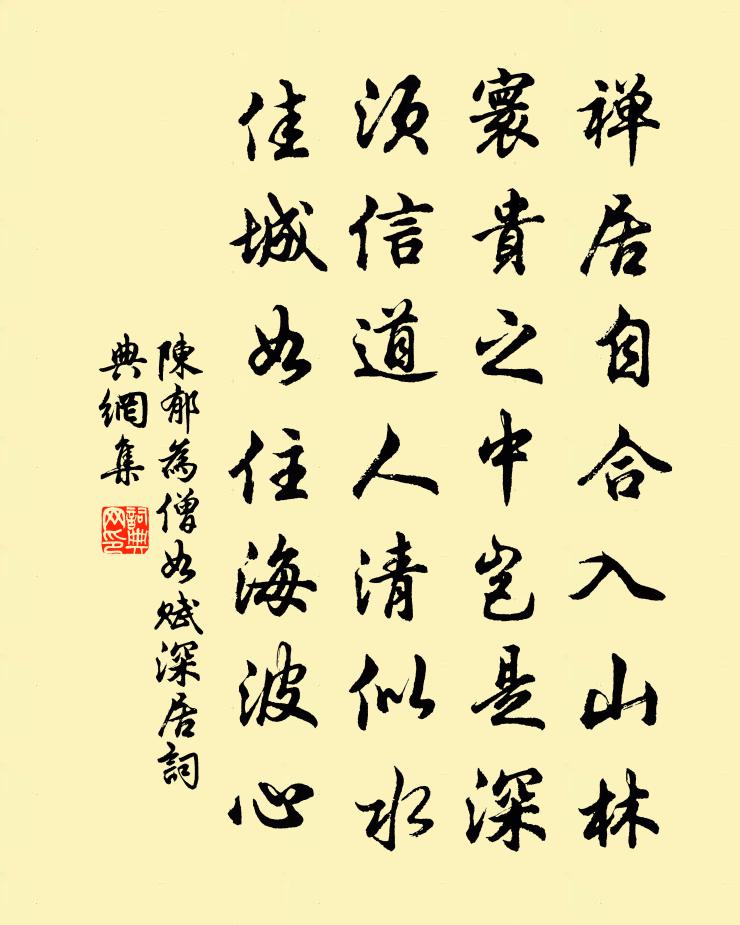 禅居自合入山林
寰貴之中岂是深
须信道人清似水
佳城如住海波心
陳郁為僧如赋深居詞
典網集
詞典
网印